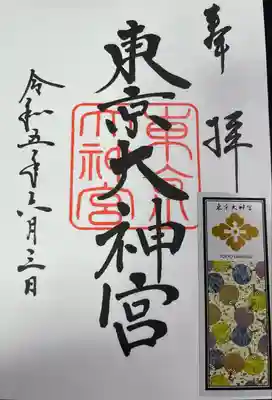 奉拝
東京大神宮
東京大神宮
令和五年六月三日
東京大神宮
TOKYO DAIJINGU